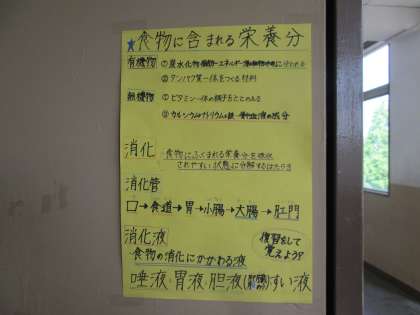 ★食物に含まれる栄養分
有機物 ①炭水化物・脂肪…エネルギー源
②タンパク質…体をつくる材料
無機物 ①ビタミン…体の調子をととのえる
②カルシウムやナトリウムや鉄…骨や血液の成分
消化 食物にふくまれる栄養分を吸収
されやすい状態に分解するはたらき
消化管
口→食道→胃→小腸→大腸→肛門
消化液
食物の消化にかかわる液
復習をして
覚えよう?
唾液・胃液・胆液(胆のう)すい液